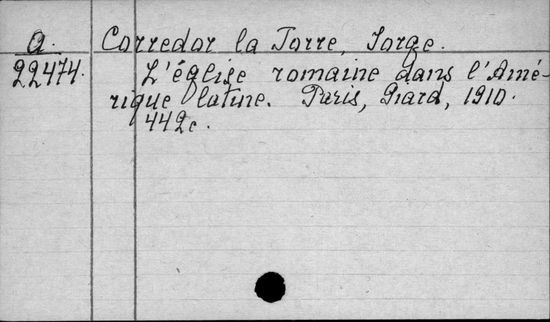 a. Corredor la Torre, Jorge.
22474. L'église romaine dans l'Amé-
rique latine. Paris, Piard, 1910.
442c.